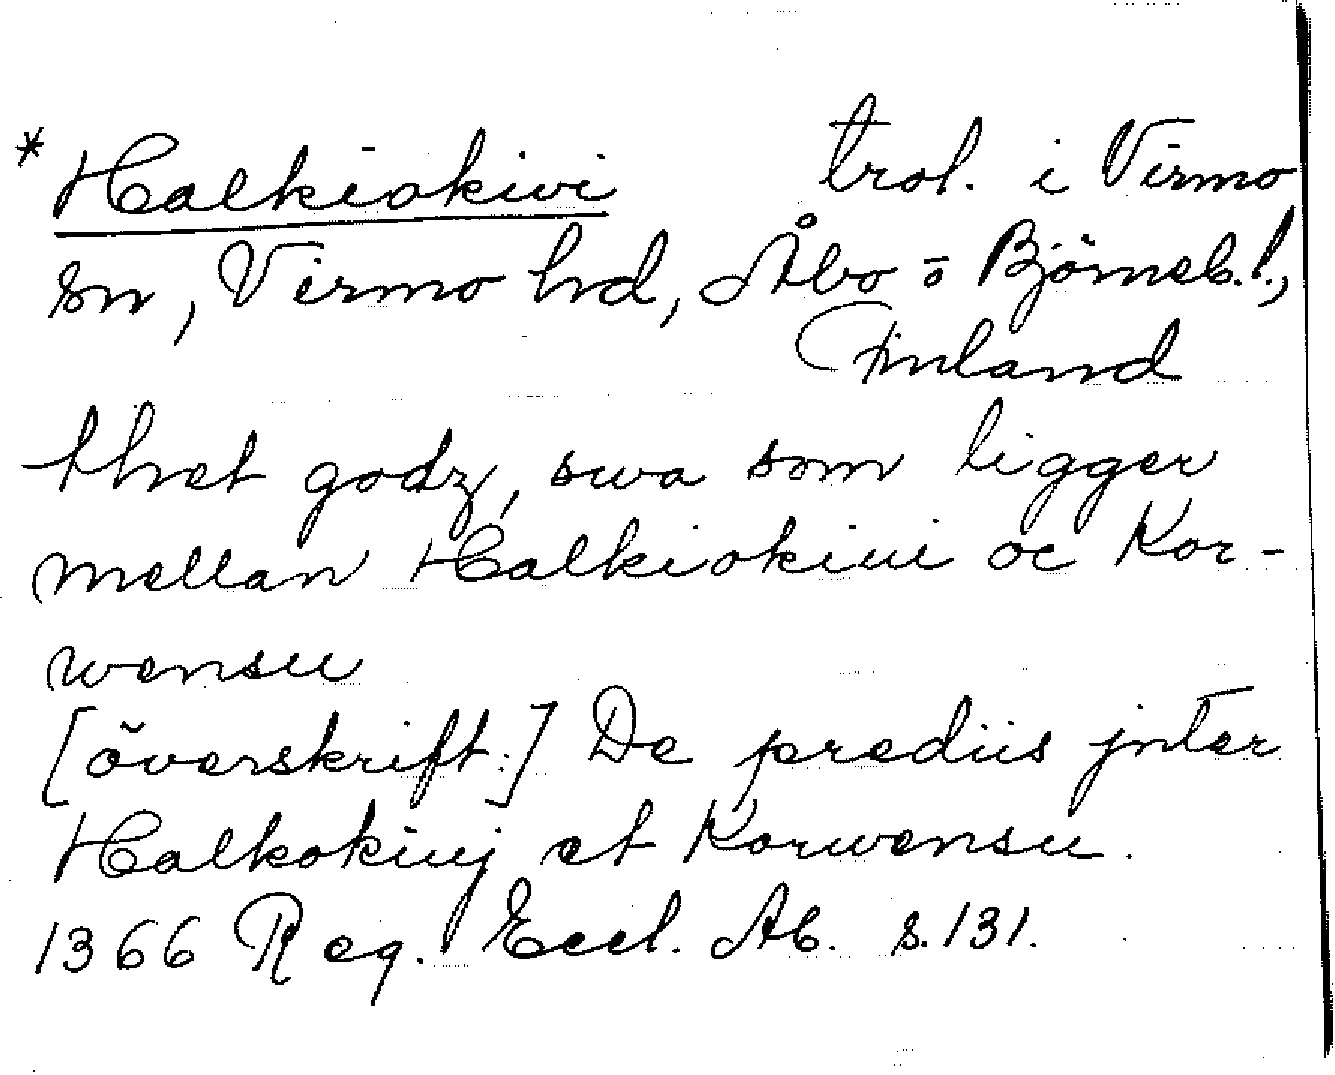 * Halkiokivi trol. i Virmo
sn, Virmo hd, Åbo o Björneb.l.,
Finland
thet godz, swa som ligger
mellan Halkiokiui oc Kor-
wensu
[överskrift:] De prediis jnter
Halkokiuj et Korwensu.
1366 Reg. Eccl. Ab. s. 131.